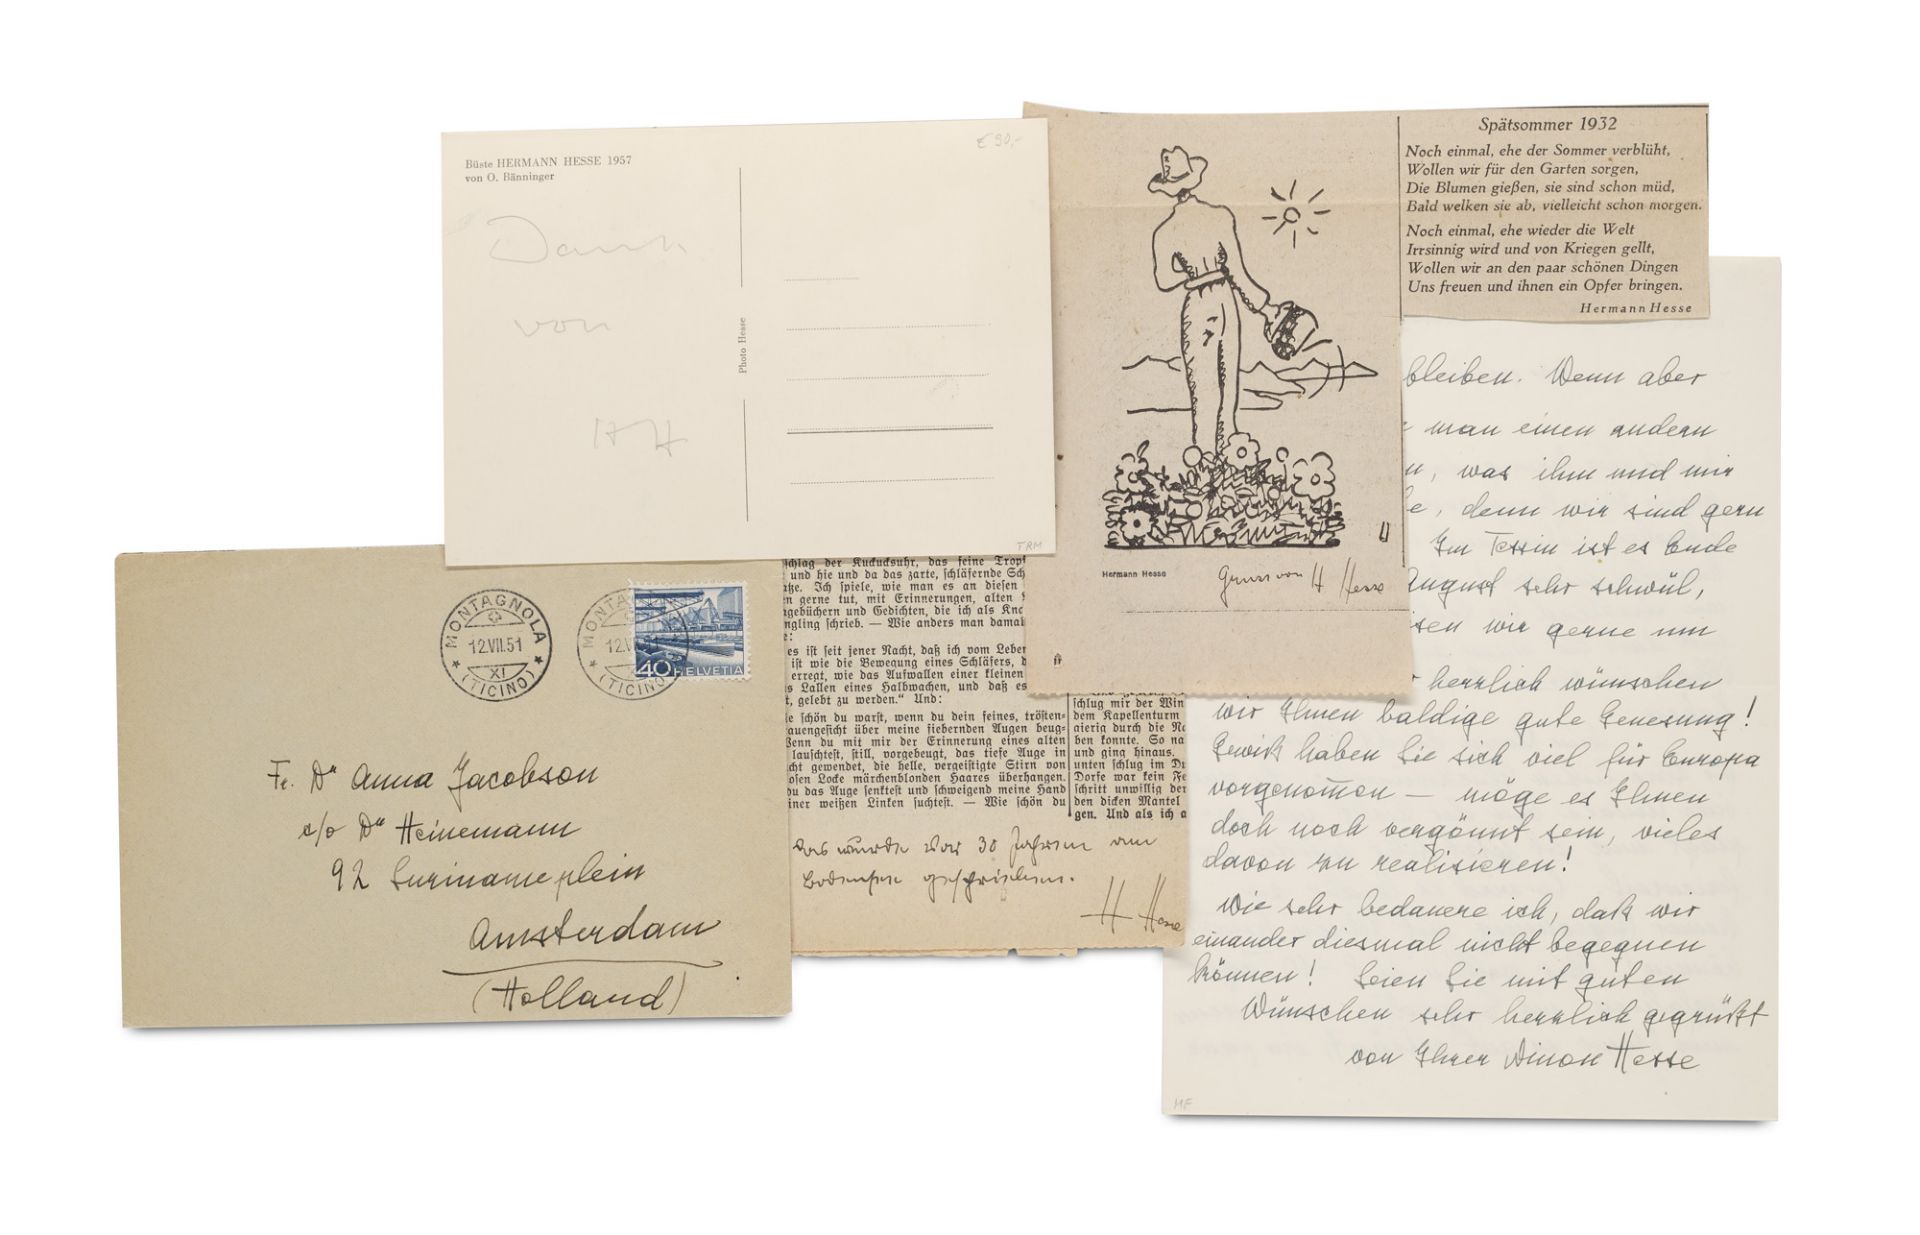 Büste HERMANN HESSE 1957
von O. Bänninger
€ 90,-
Dank
von
HH
Photo Hesse
TRM
Spätsommer 1932
Noch einmal, ehe der Sommer verblüht,
Wollen wir für den Garten sorgen,
Die Blumen gießen, sie sind schon müd,
Bald welken sie ab, vielleicht schon morgen.
Noch einmal, ehe wieder die Welt
Irrsinnig wird und von Kriegen gellt,
Wollen wir an den paar schönen Dingen
Uns freuen und ihnen ein Opfer bringen.
Hermann Hesse
Hermann Hesse
Gruss von H Hesse
MONTAGNOLA
12.VII.51
XI
(TICINO)
MONTA
12.VII.51
(TICINO)
40 HELVETIA
Fr. Dr Anna Jacobson
c/o Dr Heinemann
92 Surinameplein
Amsterdam
(Holland)
schlag der Kuckucksuhr, das feine Trop
und hie und da das zarte, schläfernde Sch
Ich spiele, wie man es an diesen
gerne tut, mit Erinnerungen, alten
gebüchern und Gedichten, die ich als Kna
ngling schrieb. — Wie anders man damal
es ist seit jener Nacht, daß ich vom Leben
ist wie die Bewegung eines Schläfers, d
erregt, wie das Aufwallen einer kleinen
s Lallen eines Halbwachen, und daß es
t, gelebt zu werden." Und:
ie schön du warst, wenn du dein feines, trösten-
auengesicht über meine fiebernden Augen beug-
Wenn du mit mir der Erinnerung eines alten
lauschtest, still, vorgebeugt, das tiefe Auge in
cht gewendet, die helle, vergeistigte Stirn von
osen Locke märchenblonden Haares überhangen.
du das Auge senktest und schweigend meine Hand
iner weißen Linken suchtest. — Wie schön du
schlug mir der Win
dem Kapellenturm
gierig durch die Na
ben konnte. So na
und ging hinaus.
unten schlug im Du
Dorfe war kein Fe
schritt unwillig der
den dicken Mantel
gen. Und als ich a
Das wurde vor 30 Jahren am
Bodensee geschrieben.
H Hesse
bleiben. Wenn aber
man einen andern
, was ihm und mir
e, denn wir sind gern
Im Tessin ist es Ende
August sehr schwül,
sen wir gerne um
herzlich wünschen
wir Ihnen baldige gute Genesung!
Gewiß haben Sie sich viel für Europa
vorgenommen — möge es Ihnen
doch noch vergönnt sein, vieles
davon zu realisieren!
Wie sehr bedauere ich, daß wir
einander diesmal nicht begegnen
können! Seien Sie mit guten
Wünschen sehr herzlich gegrüßt
von Ihrer Ninon Hesse
MF